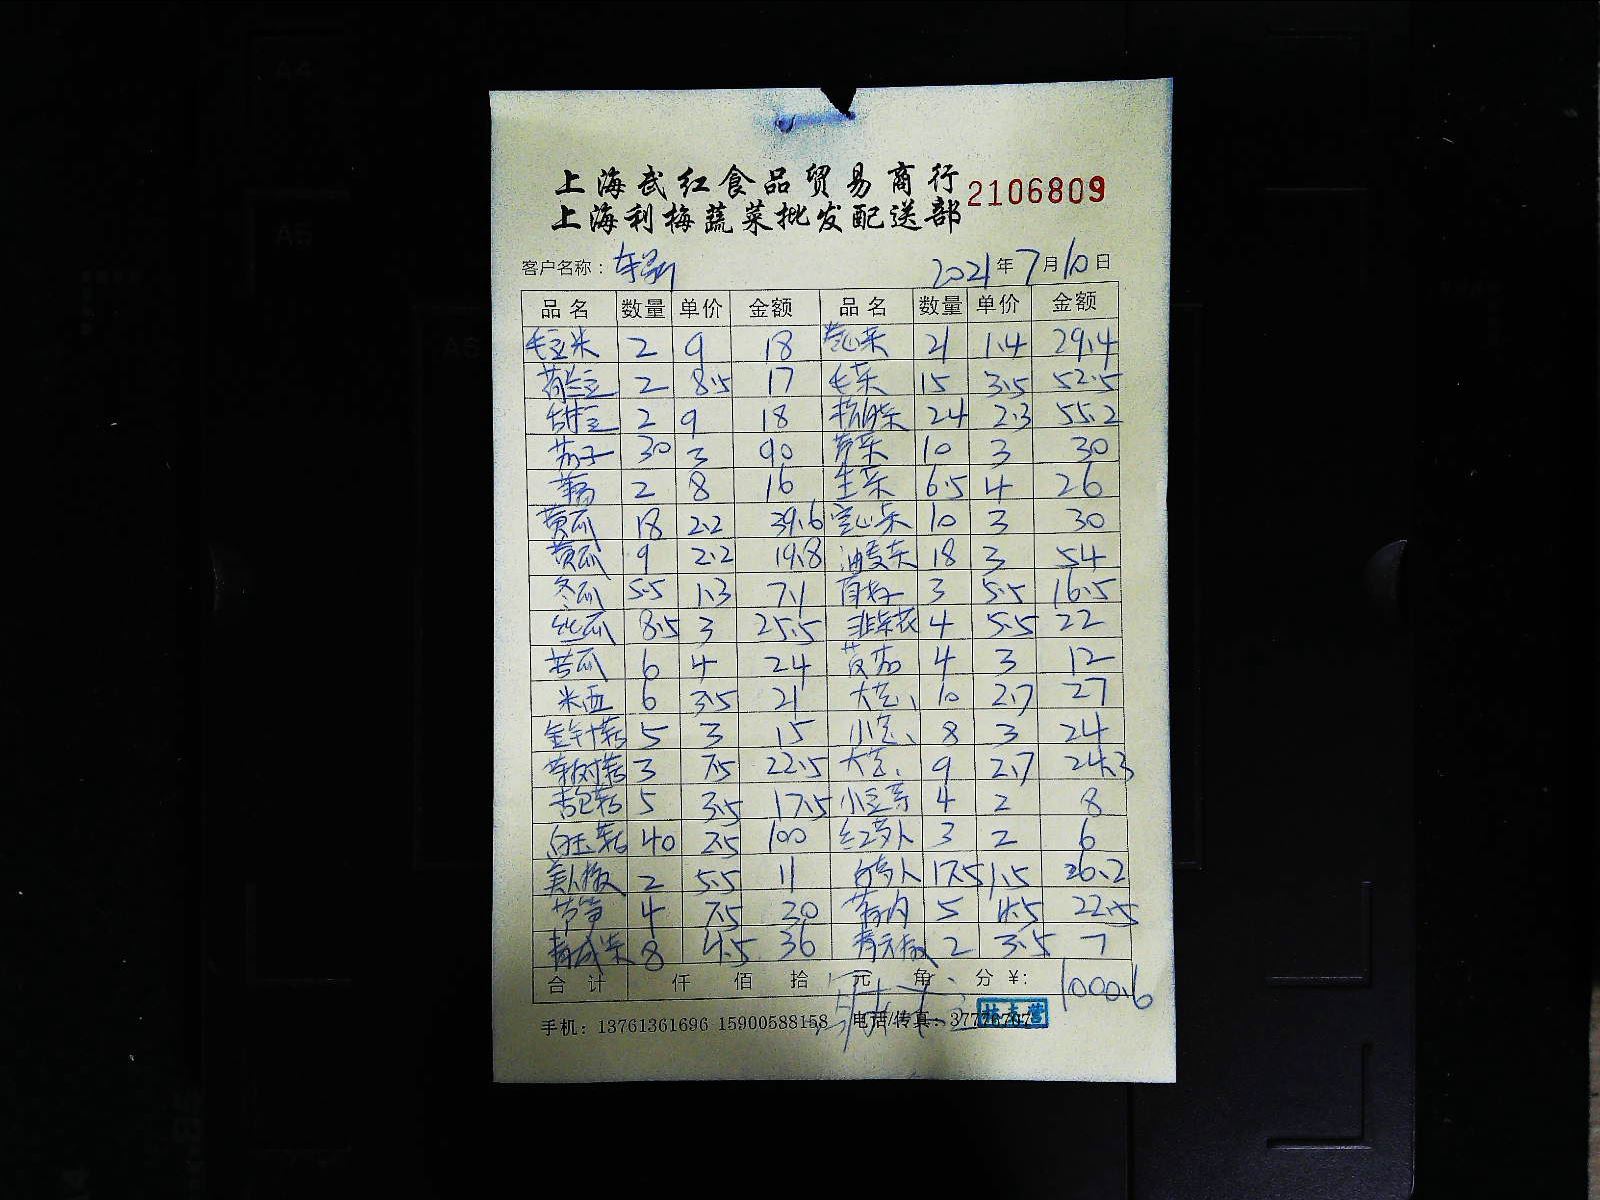 上海武红食品贸易商行
上海利梅蔬菜批发配送部
2106809
客户名称：
2021年7月10日
品名 数量 单价 金额 品名 数量 单价 金额
毛豆米 2 9 18 卷心菜 21 1.4 29.4
荷兰豆 2 8.5 17 毛菜 15 3.5 52.5
甜豆 2 9 18 24 2.3 55.2
茄子 30 3 90 芹菜 10 3 30
2 8 16 生菜 6.5 4 26
黄瓜 18 2.2 39.6 空心菜 10 3 30
黄瓜 9 2.2 19.8 油麦菜 18 3 54
冬瓜 5.5 1.3 7.1 3 5.5 16.5
丝瓜 8.5 3 25.5 韭菜花 4 5.5 22
苦瓜 6 4 24 4 3 12
米西 6 3.5 21 大 10 2.7 27
金针菇 5 3 15 小 8 3 24
茶树菇 3 7.5 22.5 大 9 2.7 24.3
杏包菇 5 3.5 17.5 小豆芽 4 2 8
白玉菇 40 2.5 100 红萝卜 3 2 6
美人椒 2 5.5 11 白萝卜 17.5 1.5 26.2
4 7.5 30 5 4.5 22.5
8 4.5 36 青尖椒 2 3.5 7
合计 仟 佰 拾 元 角 分 ¥: 1000.6
手机：13761361696 15900588158 电话/传真：37776707